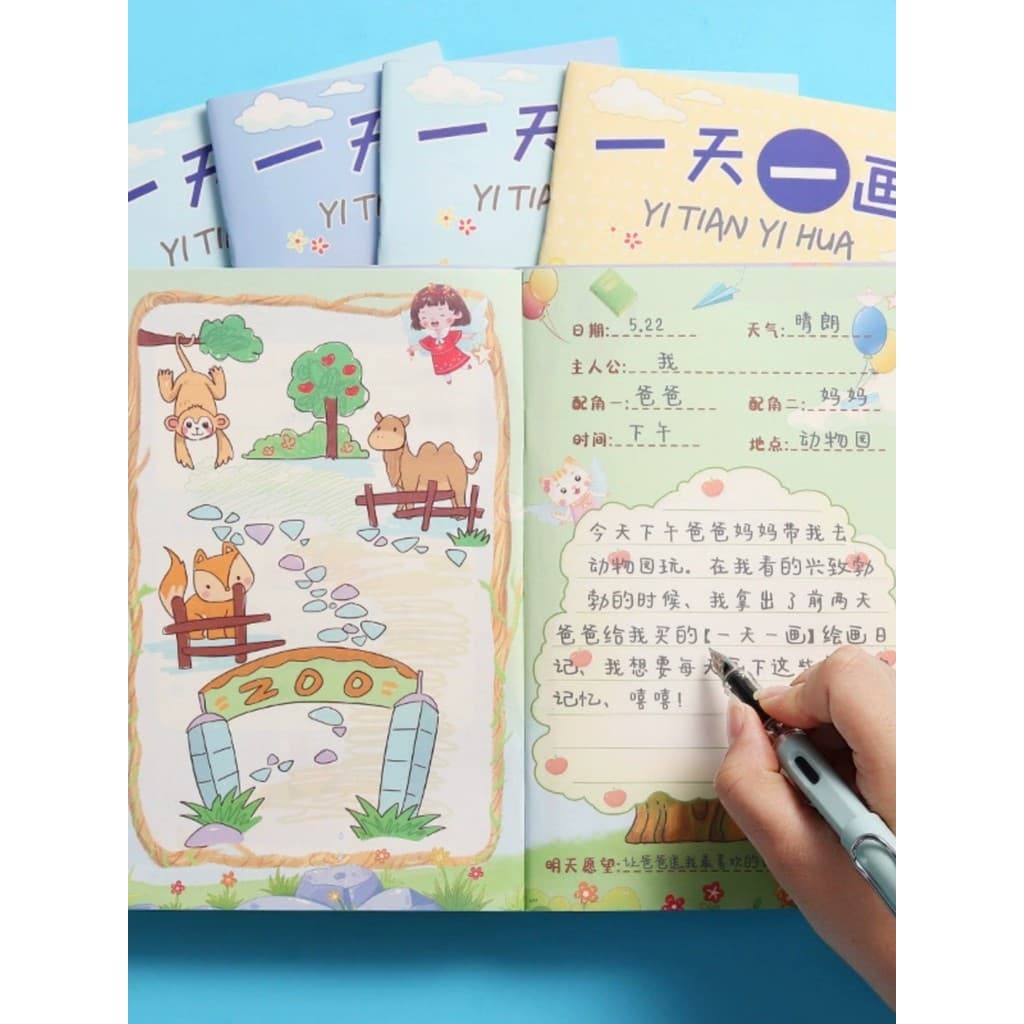 一天
YI TI
一天
YI T
一天
YI TIA
一天一画
YI TIAN YI HUA
日期: 5.22 天气: 晴朗
主人公: 我
配角一: 爸爸 配角二: 妈妈
时间: 下午 地点: 动物园
今天下午爸爸妈妈带我去
动物园玩。在我看的兴致勃
勃的时候、我拿出了前两天
爸爸给我买的【一天一画】绘画日
记、我想要每天 下这些
记忆、嘻嘻!
ZOO
明天愿望: 让爸爸送我最喜欢的